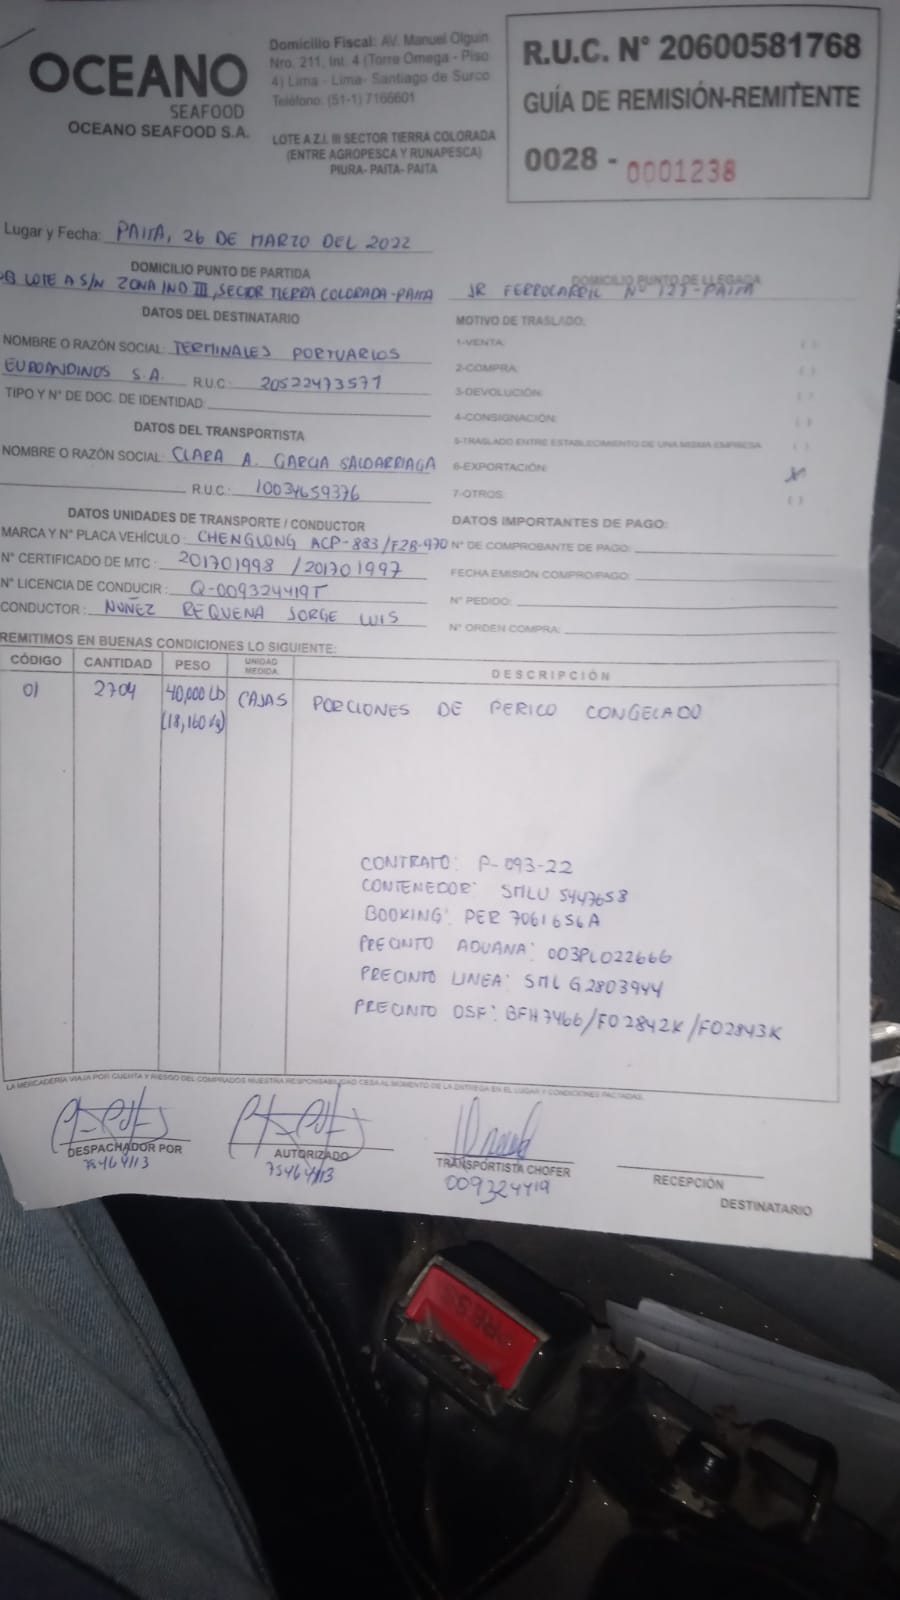 OCEANO
SEAFOOD
OCEANO SEAFOOD S.A.
Domicilio Fiscal: AV. Manuel Olguin
Nro. 211, Int. 4 (Torre Omega - Piso
4) Lima - Lima- Santiago de Surco
Teléfono: (51-1) 7166601
LOTE A Z.I. III SECTOR TIERRA COLORADA
(ENTRE AGROPESCA Y RUNAPESCA)
PIURA- PAITA- PAITA
R.U.C. N° 20600581768
GUÍA DE REMISIÓN-REMITENTE
0028 - 0001238
Lugar y Fecha: PAITA, 26 DE MARZO DEL 2022
DOMICILIO PUNTO DE PARTIDA
LOTE A S/N ZONA IND III, SECTOR TIERRA COLORADA-PAITA
DOMICILIO PUNTO DE LLEGADA
JR FERROCARRIL Nº 127-PAITA
DATOS DEL DESTINATARIO
NOMBRE O RAZÓN SOCIAL: TERMINALES PORTUARIOS
EUROANDINOS S.A. R.U.C: 20522473571
TIPO Y N° DE DOC. DE IDENTIDAD:
DATOS DEL TRANSPORTISTA
NOMBRE O RAZÓN SOCIAL: CLARA A. GARCIA SALDARRIAGA
R.U.C.: 10034659376
MOTIVO DE TRASLADO:
1-VENTA: ( )
2-COMPRA: ( )
3-DEVOLUCIÓN: ( )
4-CONSIGNACIÓN: ( )
5-TRASLADO ENTRE ESTABLECIMIENTO DE UNA MISMA EMPRESA ( )
6-EXPORTACIÓN: X
7-OTROS: ( )
DATOS UNIDADES DE TRANSPORTE / CONDUCTOR
MARCA Y N° PLACA VEHÍCULO: CHENGLONG ACP-883/F2B-970
N° CERTIFICADO DE MTC: 201701998 / 201701997
N° LICENCIA DE CONDUCIR: Q-009324419T
CONDUCTOR: NUÑEZ REQUENA JORGE LUIS
DATOS IMPORTANTES DE PAGO:
N° DE COMPROBANTE DE PAGO:
FECHA EMISIÓN COMPRO/PAGO:
N° PEDIDO:
N° ORDEN COMPRA:
REMITIMOS EN BUENAS CONDICIONES LO SIGUIENTE:
CÓDIGO CANTIDAD PESO UNIDAD MEDIDA DESCRIPCIÓN
01 2704 40,000 Lb CAJAS PORCIONES DE PERICO CONGELADO
(18,160 Kg)
CONTRATO: P-093-22
CONTENEDOR: SMLU 5447658
BOOKING: PER 7061656A
PRECINTO ADUANA: 003PL022666
PRECINTO LINEA: SML G2803944
PRECINTO OSF: BFH7466/FO2842K/FO2843K
LA MERCADERÍA VIAJA POR CUENTA Y RIESGO DEL COMPRADOR NUESTRA RESPONSABILIDAD CESA AL MOMENTO DE LA ENTREGA EN EL LUGAR Y CONDICIONES PACTADAS.
DESPACHADOR POR
75464113
AUTORIZADO
75464113
TRANSPORTISTA CHOFER
009324419
RECEPCIÓN
DESTINATARIO
PRESS